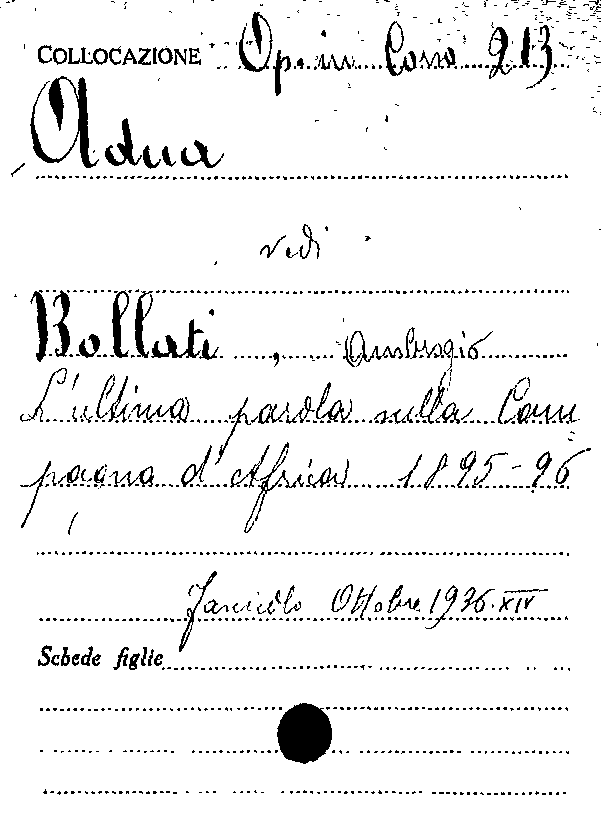 COLLOCAZIONE Op. in Corso 213
Adua
vedi
Bollati, Ambrogio
L'ultima parola sulla Cam
pagna d'Africa 1895-96
Fascicolo Ottobre 1936.XIV
Schede figlie